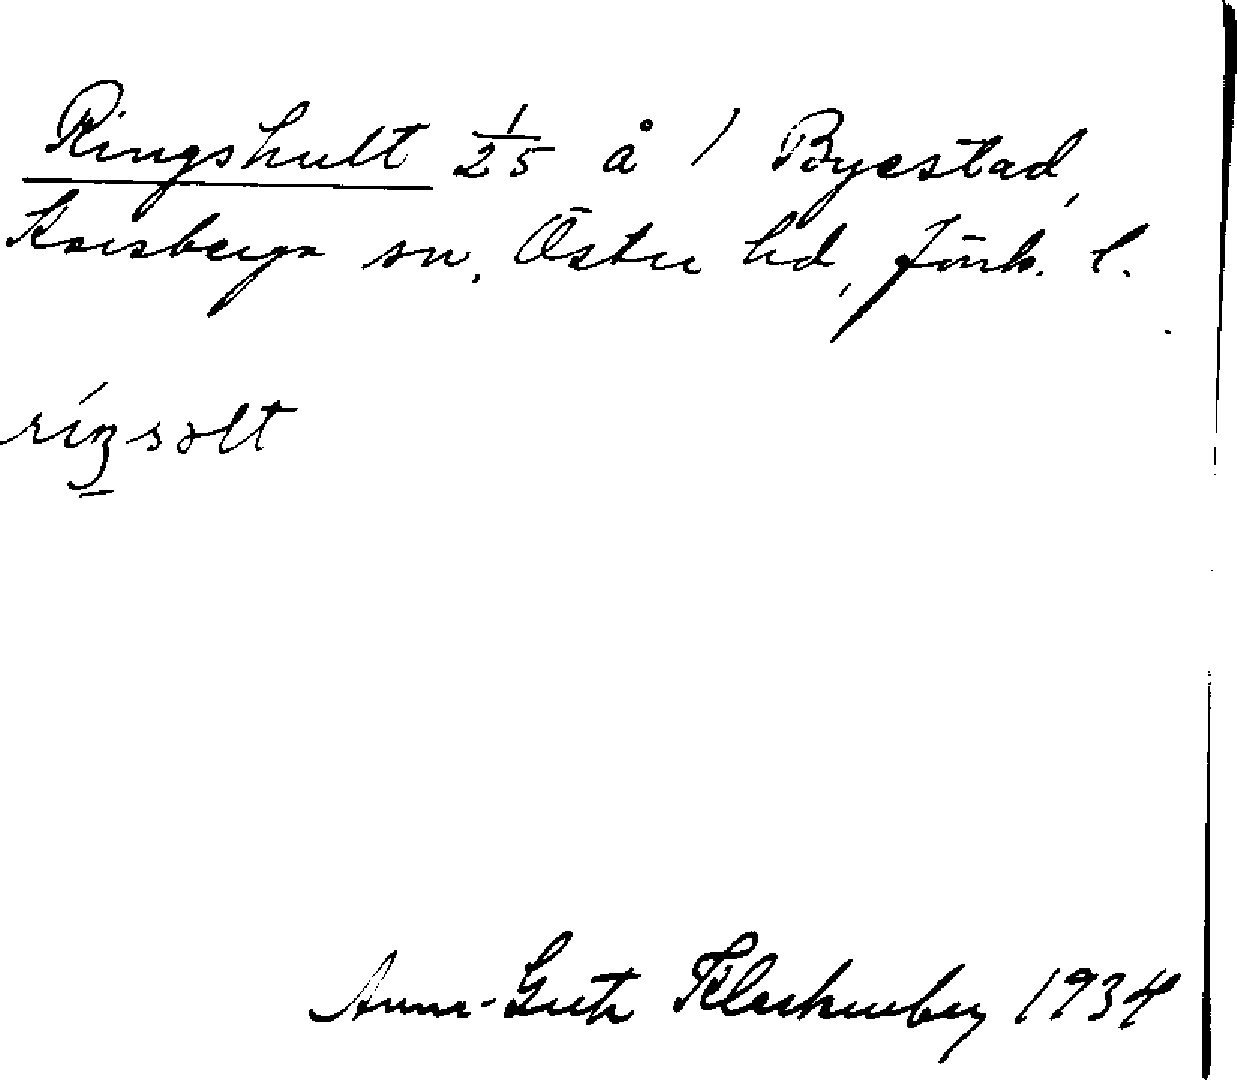 Ringshult 1/25 å 1 Byestad,
Korsberga sn, Östra hd, Jönk. l.
ríŋsɔlt
Anna-Greta Klackenberg 1934